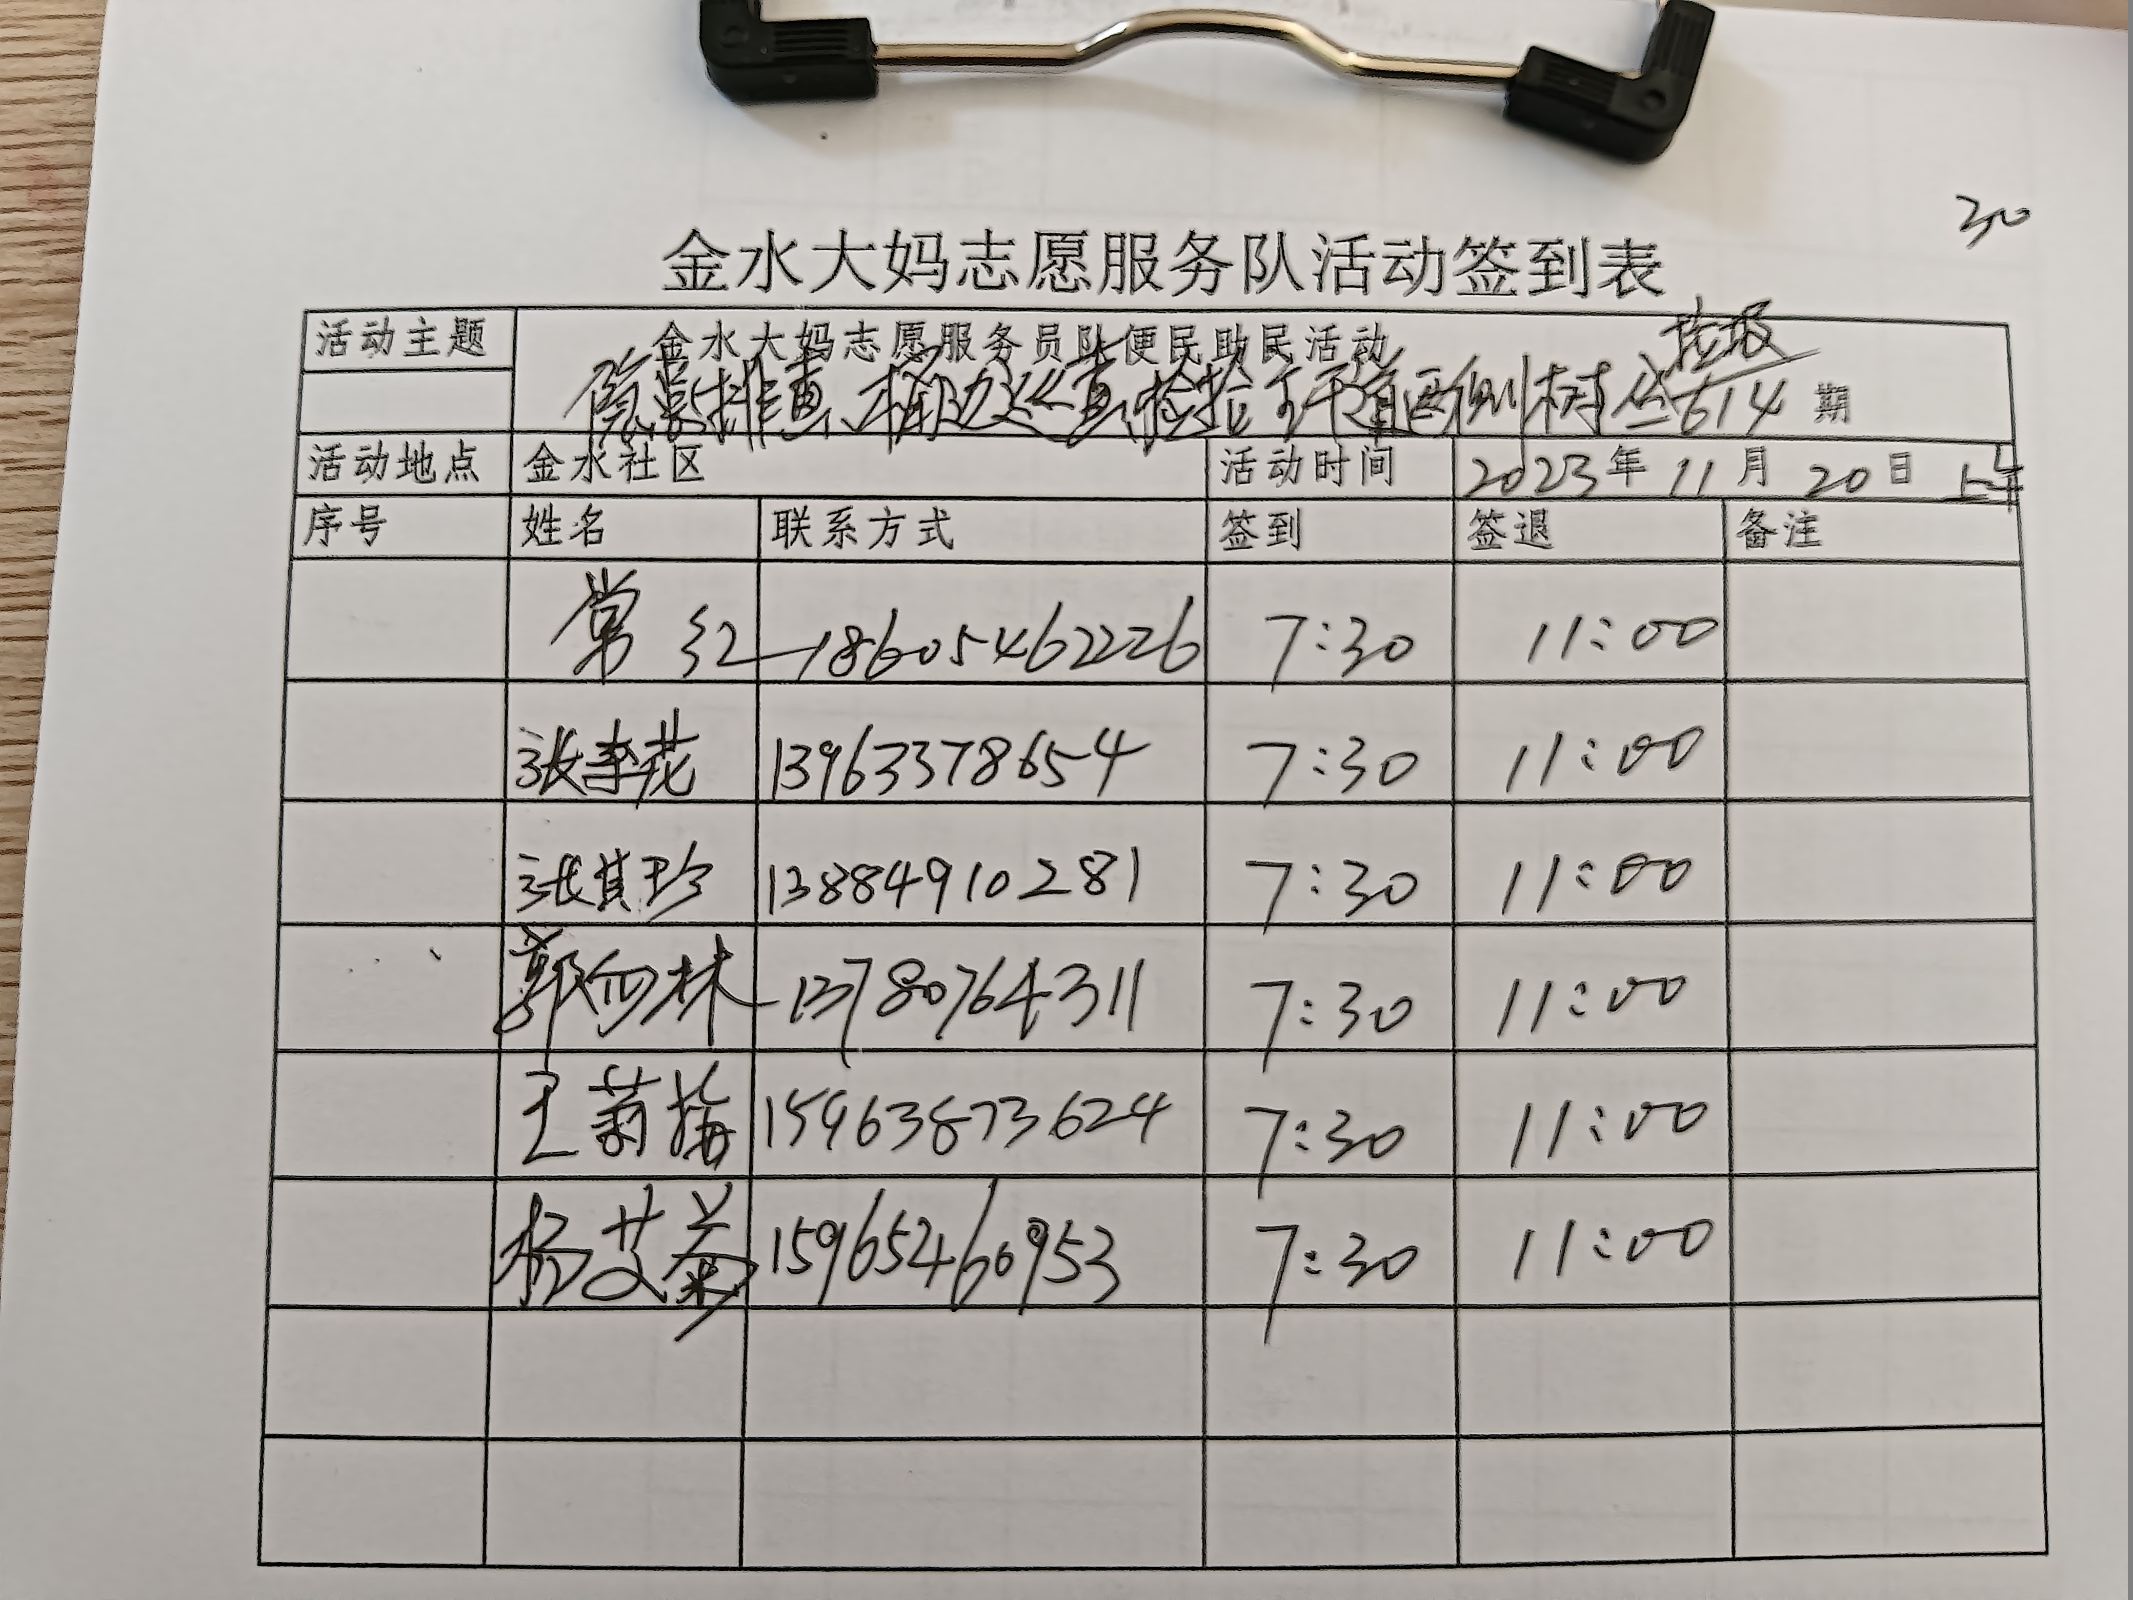 30
金水大妈志愿服务队活动签到表
活动主题 金水大妈志愿服务员队便民助民活动 垃圾
隐患排查、巡查、捡拾 道两侧树丛 614 期
活动地点 金水社区 活动时间 2023年 11月 20日 上午
序号 姓名 联系方式 签到 签退 备注
常红 18605462226 7:30 11:00
张李花 13963378654 7:30 11:00
张其珍 13884910281 7:30 11:00
郭向林 13780764311 7:30 11:00
王菊梅 15963873624 7:30 11:00
杨艾菊 15965460953 7:30 11:00